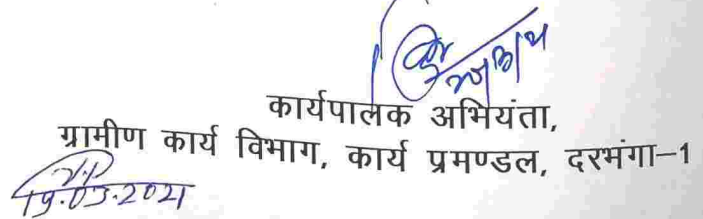 कार्यपालक अभियंता,
ग्रामीण कार्य विभाग, कार्य प्रमण्डल, दरभंगा-1
19.03.2021